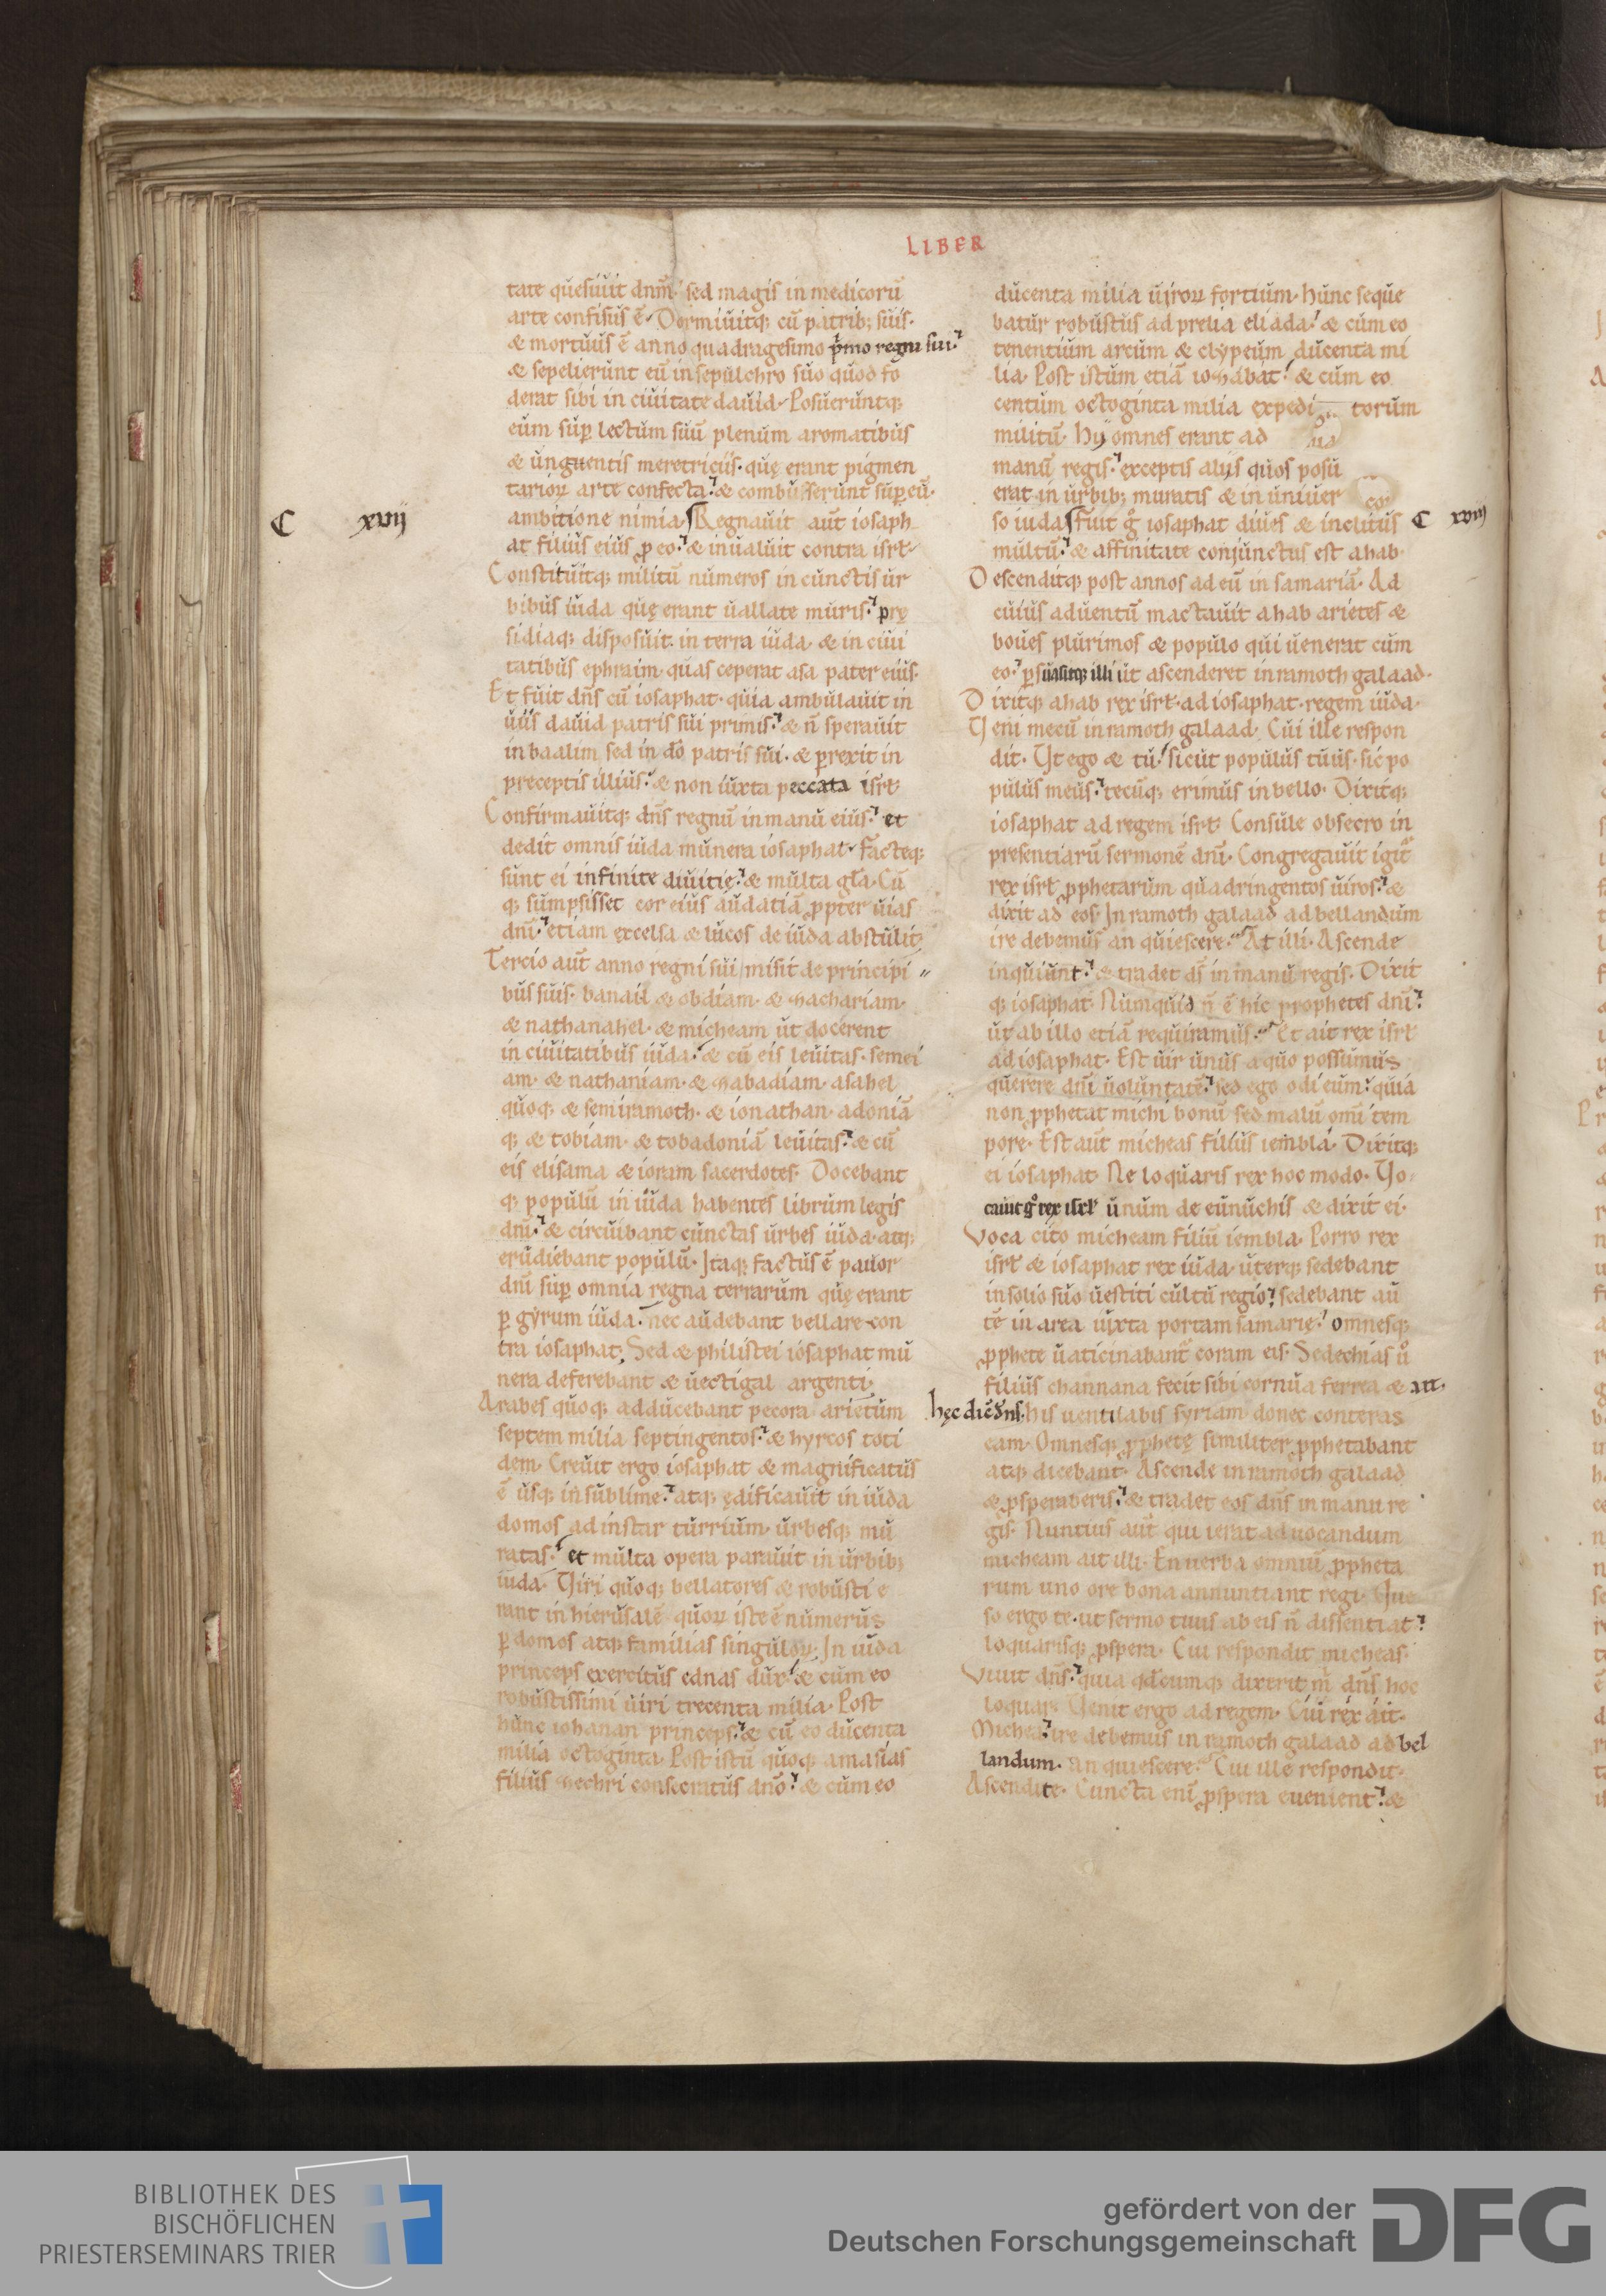 LIBER
tate quesiuit dnm̄. sed magis in medicorū
arte confisus ē. Dormiuitq; cū patrib; suis.
& mortuus ē anno quadragesimo p̄mo regni sui.
& sepelierunt eū in sepulchro suo quod fo
derat sibi in ciuitate dauid. Posueruntq;
eum sup̱ lectum suū plenum aromatibus
& unguentis meretriciis. quę erant pigmen
tarioꝝ arte confecta. & combusserunt sup̱ eū.
ambitione nimia. Regnauit aut̄ iosaph
C xvij
at filius eius ꝓ eo. & inualuit contra isrł.
Constituitq; militū numeros in cunctis ur
bibus iuda quę erant uallate muris. prę
sidiaq; disposuit in terra iuda. & in ciui
tatibus ephraim. quas ceperat asa pater eius.
Et fuit dn̄s cū iosaphat. quia ambulauit in
uiis dauid patris sui primis. & n̄ sperauit
in baalim sed in dō patris sui. & ꝑrexit in
preceptis illius. & non iuxta peccata isrł
Confirmauitq; dn̄s regnū in manu eius. et
dedit omnis iuda munera iosaphat. Facteq;
sunt ei infinite diuitię. & multa gła. Cū
q; sumpsisset cor eius audatiā ꝓpter uias
dnī. etiam excelsa & lucos de iuda abstulit.
Tercio aut̄ anno regni sui misit de principi
bus suis. banail & obdiam. & zachariam.
& nathanahel. & micheam ut docerent
in ciuitatibus iuda. & cū eis leuitas. semei
am. & nathaniam. & zabadiam. asahel
quoq; & semiramoth. & ionathan. adoniā
q; & tobiam. & tobadoniā leuitas. & cū
eis elisama & ioram sacerdotes. Docebant
q; populū in iuda habentes librum legis
dnī. & circuibant cunctas urbes iuda. atq;
erudiebant populū. Itaq; factus ē pauor
dnī sup̱ omnia regna terrarum quę erant
ꝑ gyrum iuda. nec audebant bellare con
tra iosaphat. Sed & philistei iosaphat mu
nera deferebant & uectigal argenti.
Arabes quoq; adducebant pecora. arietum
septem milia septingentos. & hyrcos toti
dem. Creuit ergo iosaphat & magnificatus
ē usq; in sublime. atq; ędificauit in iuda
domos ad instar turrium. urbesq; mu
ratas. et multa opera parauit in urbib;
iuda. Uiri quoq; bellatores & robusti e
rant in hierusalē quoꝝ iste ē numerus
ꝑ domos atq; familias singuloꝝ. In iuda
princeps exercitus ednas dux. & cum eo
robustissimi uiri trecenta milia. Post
hunc iohanan princeps. & cū eo ducenta
milia octoginta. Post istū quoq; amasias
filius zechri consecratus dnō. & cum eo
ducenta milia uiroꝝ fortium. Hunc seque
batur robustus ad prelia eliada. & cum eo
tenentium arcum & clypeum ducenta mi
lia. Post istum etiā iozabat. & cum eo
centum octoginta milia expedi torum
militū. Hij omnes erant ad
manū regis. exceptis alijs quos posu
erat in urbib; muratis & in uniuer
so iuda. Fuit g̊ iosaphat diues & inclitus
C xviij
multū. & affinitate conjunctus est ahab.
Descenditq; post annos ad eū in samariā. Ad
cuius aduentū mactauit ahab arietes &
boues plurimos & populo qui uenerat cum
eo. ꝑsuasitq; illi ut ascenderet in ramoth galaad.
Dixitq; ahab rex isrł. ad iosaphat. regem iuda.
Ueni mecū in ramoth galaad. Cui ille respon
dit. Ut ego & tu. sicut populus tuus. sic po
pulus meus. tecūq; erimus in bello. Dixitq;
iosaphat ad regem isrł. Consule obsecro in
presentiarū sermonē dnī. Congregauit igit̄
rex isrł ꝓphetarum quadringentos uiros. &
dixit ad eos. In ramoth galaad ad bellandum
ire debemus an quiescere. At illi. Ascende
inquiunt. & tradet ds̄ in manu regis. Dixit
q; iosaphat. Numquid n̄ ē hic prophetes dnī.
ut ab illo etiā requiramus. Et ait rex isrł
ad iosaphat. Est uir unus a quo possumus
querere dnī uoluntatē. sed ego odi eum. quia
non ꝓphetat michi bonū sed malū omī tem
pore. Est aut̄ micheas filius iembla. Dixitq;
ei iosaphat. Ne loquaris rex hoc modo. Uo
cauit g̊ rex isrł unum de eunuchis & dixit ei.
Voca cito micheam filiū iembla. Porro rex
isrł & iosaphat rex iuda. uterq; sedebant
in solio suo uestiti cultu regio. sedebant au
tē in area iuxta portam samarię. omnesq;
ꝓphete uaticinabant̄ coram eis. Sedechias ů
filius channana fecit sibi cornua ferrea & ait.
hęc dic̄ dn̄s. his uentilabis syriam donec conteras
eam. Omnesq; ꝓphetę similiter ꝓphetabant
atq; dicebant. Ascende in ramoth galaad
& ꝓsperaberis. & tradet eos dn̄s in manu re
gis. Nuntius aut̄ qui ierat ad uocandum
micheam ait illi. En uerba omniū ꝓpheta
rum uno ore bona annuntiant regi. Que
so ergo te. ut sermo tuus ab eis n̄ dissentiat.
loquarisq; ꝓspera. Cui respondit micheas.
Viuit dn̄s. quia qdcumq; dixerit m̄ dn̄s hoc
loquar. Uenit ergo ad regem. Cui rex ait.
Michea. ire debemus in ramoth galaad ad bel
landum. an quiescere. Cui ille respondit.
Ascendite. Cuncta enī ꝓspera euenient. &
BIBLIOTHEK DES
BISCHÖFLICHEN
PRIESTERSEMINARS TRIER
gefördert von der
Deutschen Forschungsgemeinschaft
DFG